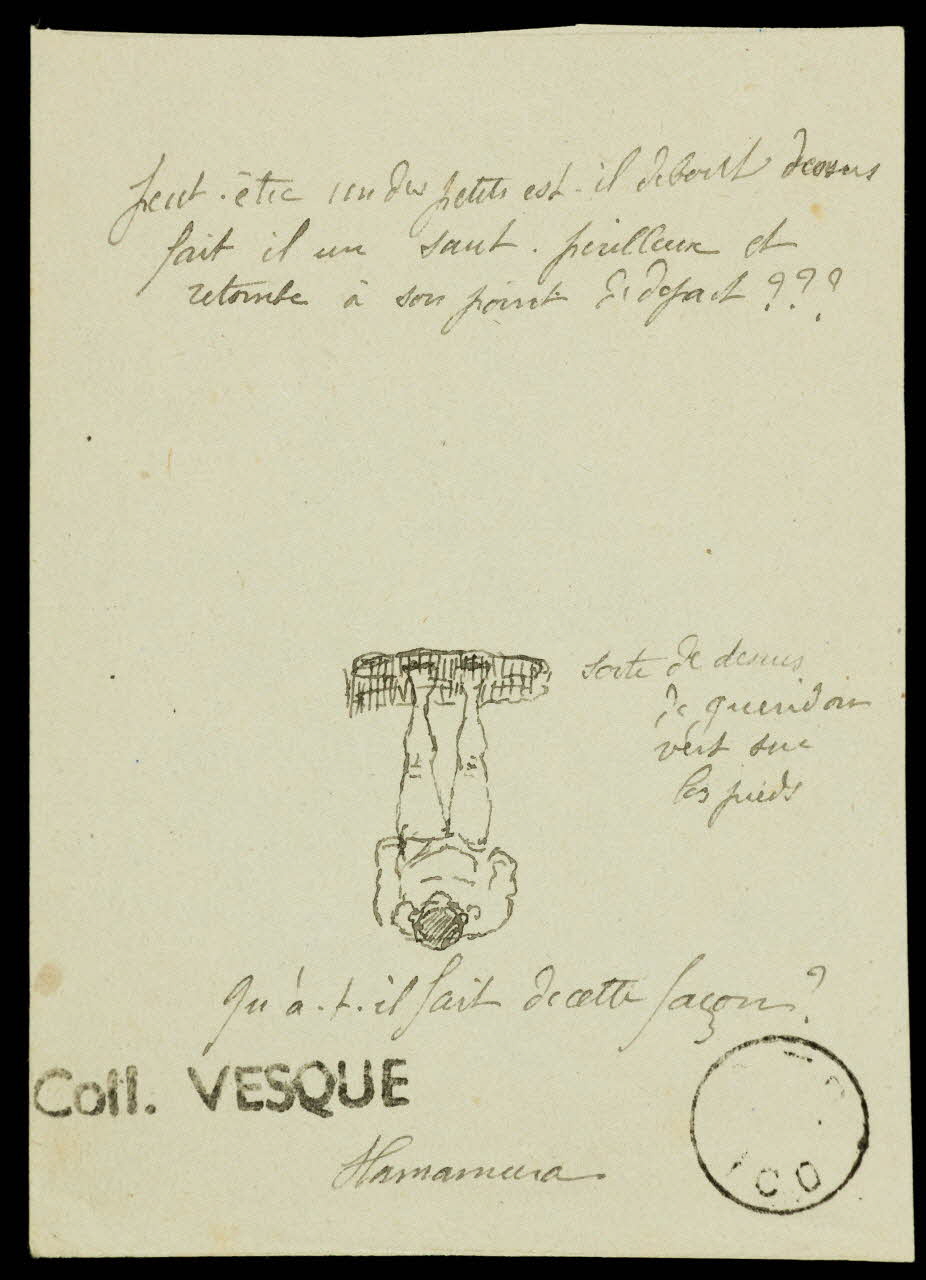 peut-être un des petits est-il debout dessus
fait il un saut-périlleux et
retombe à son point de départ ???
sorte de dessus
de gueridon
vert sur
les pieds
Qu'à-t-il fait de cette façon ?
Coll. VESQUE
Hamamura